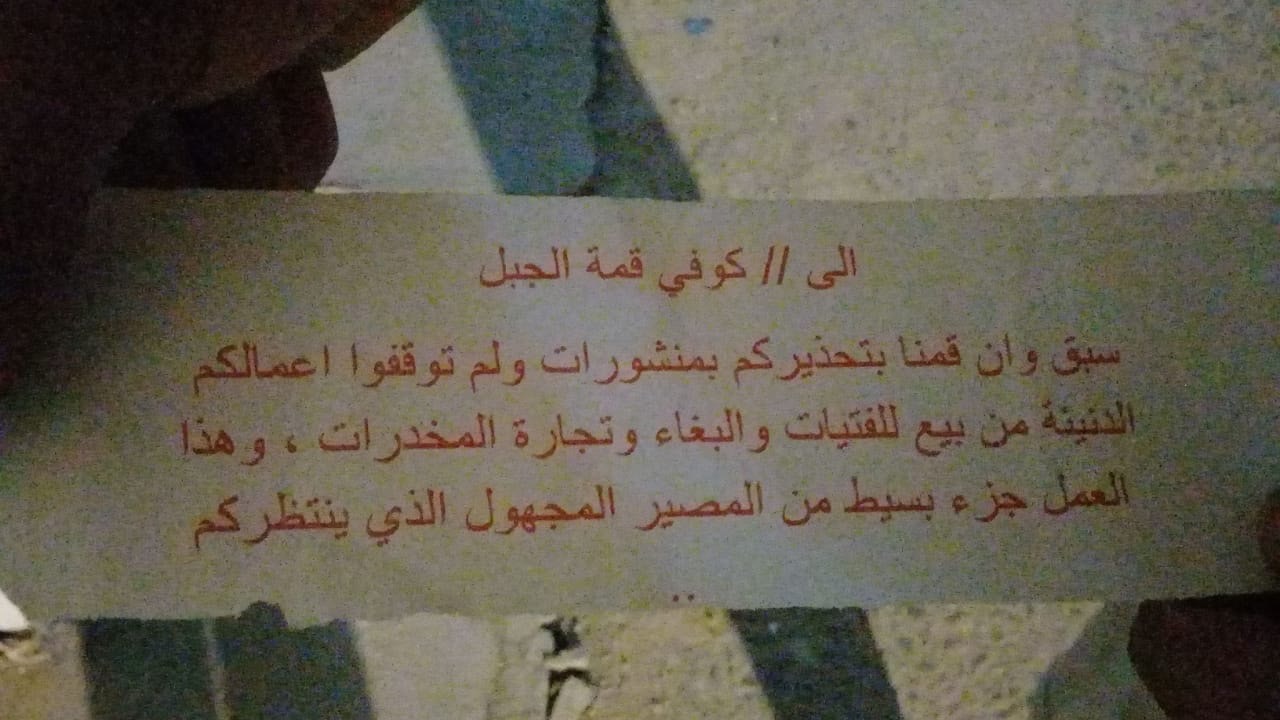 الى // كوفي قمة الجبل
سبق وان قمنا بتحذيركم بمنشورات ولم توقفوا اعمالكم
الدنيئة من بيع للفتيات والبغاء وتجارة المخدرات ، وهذا
العمل جزء بسيط من المصير المجهول الذي ينتظركم
..